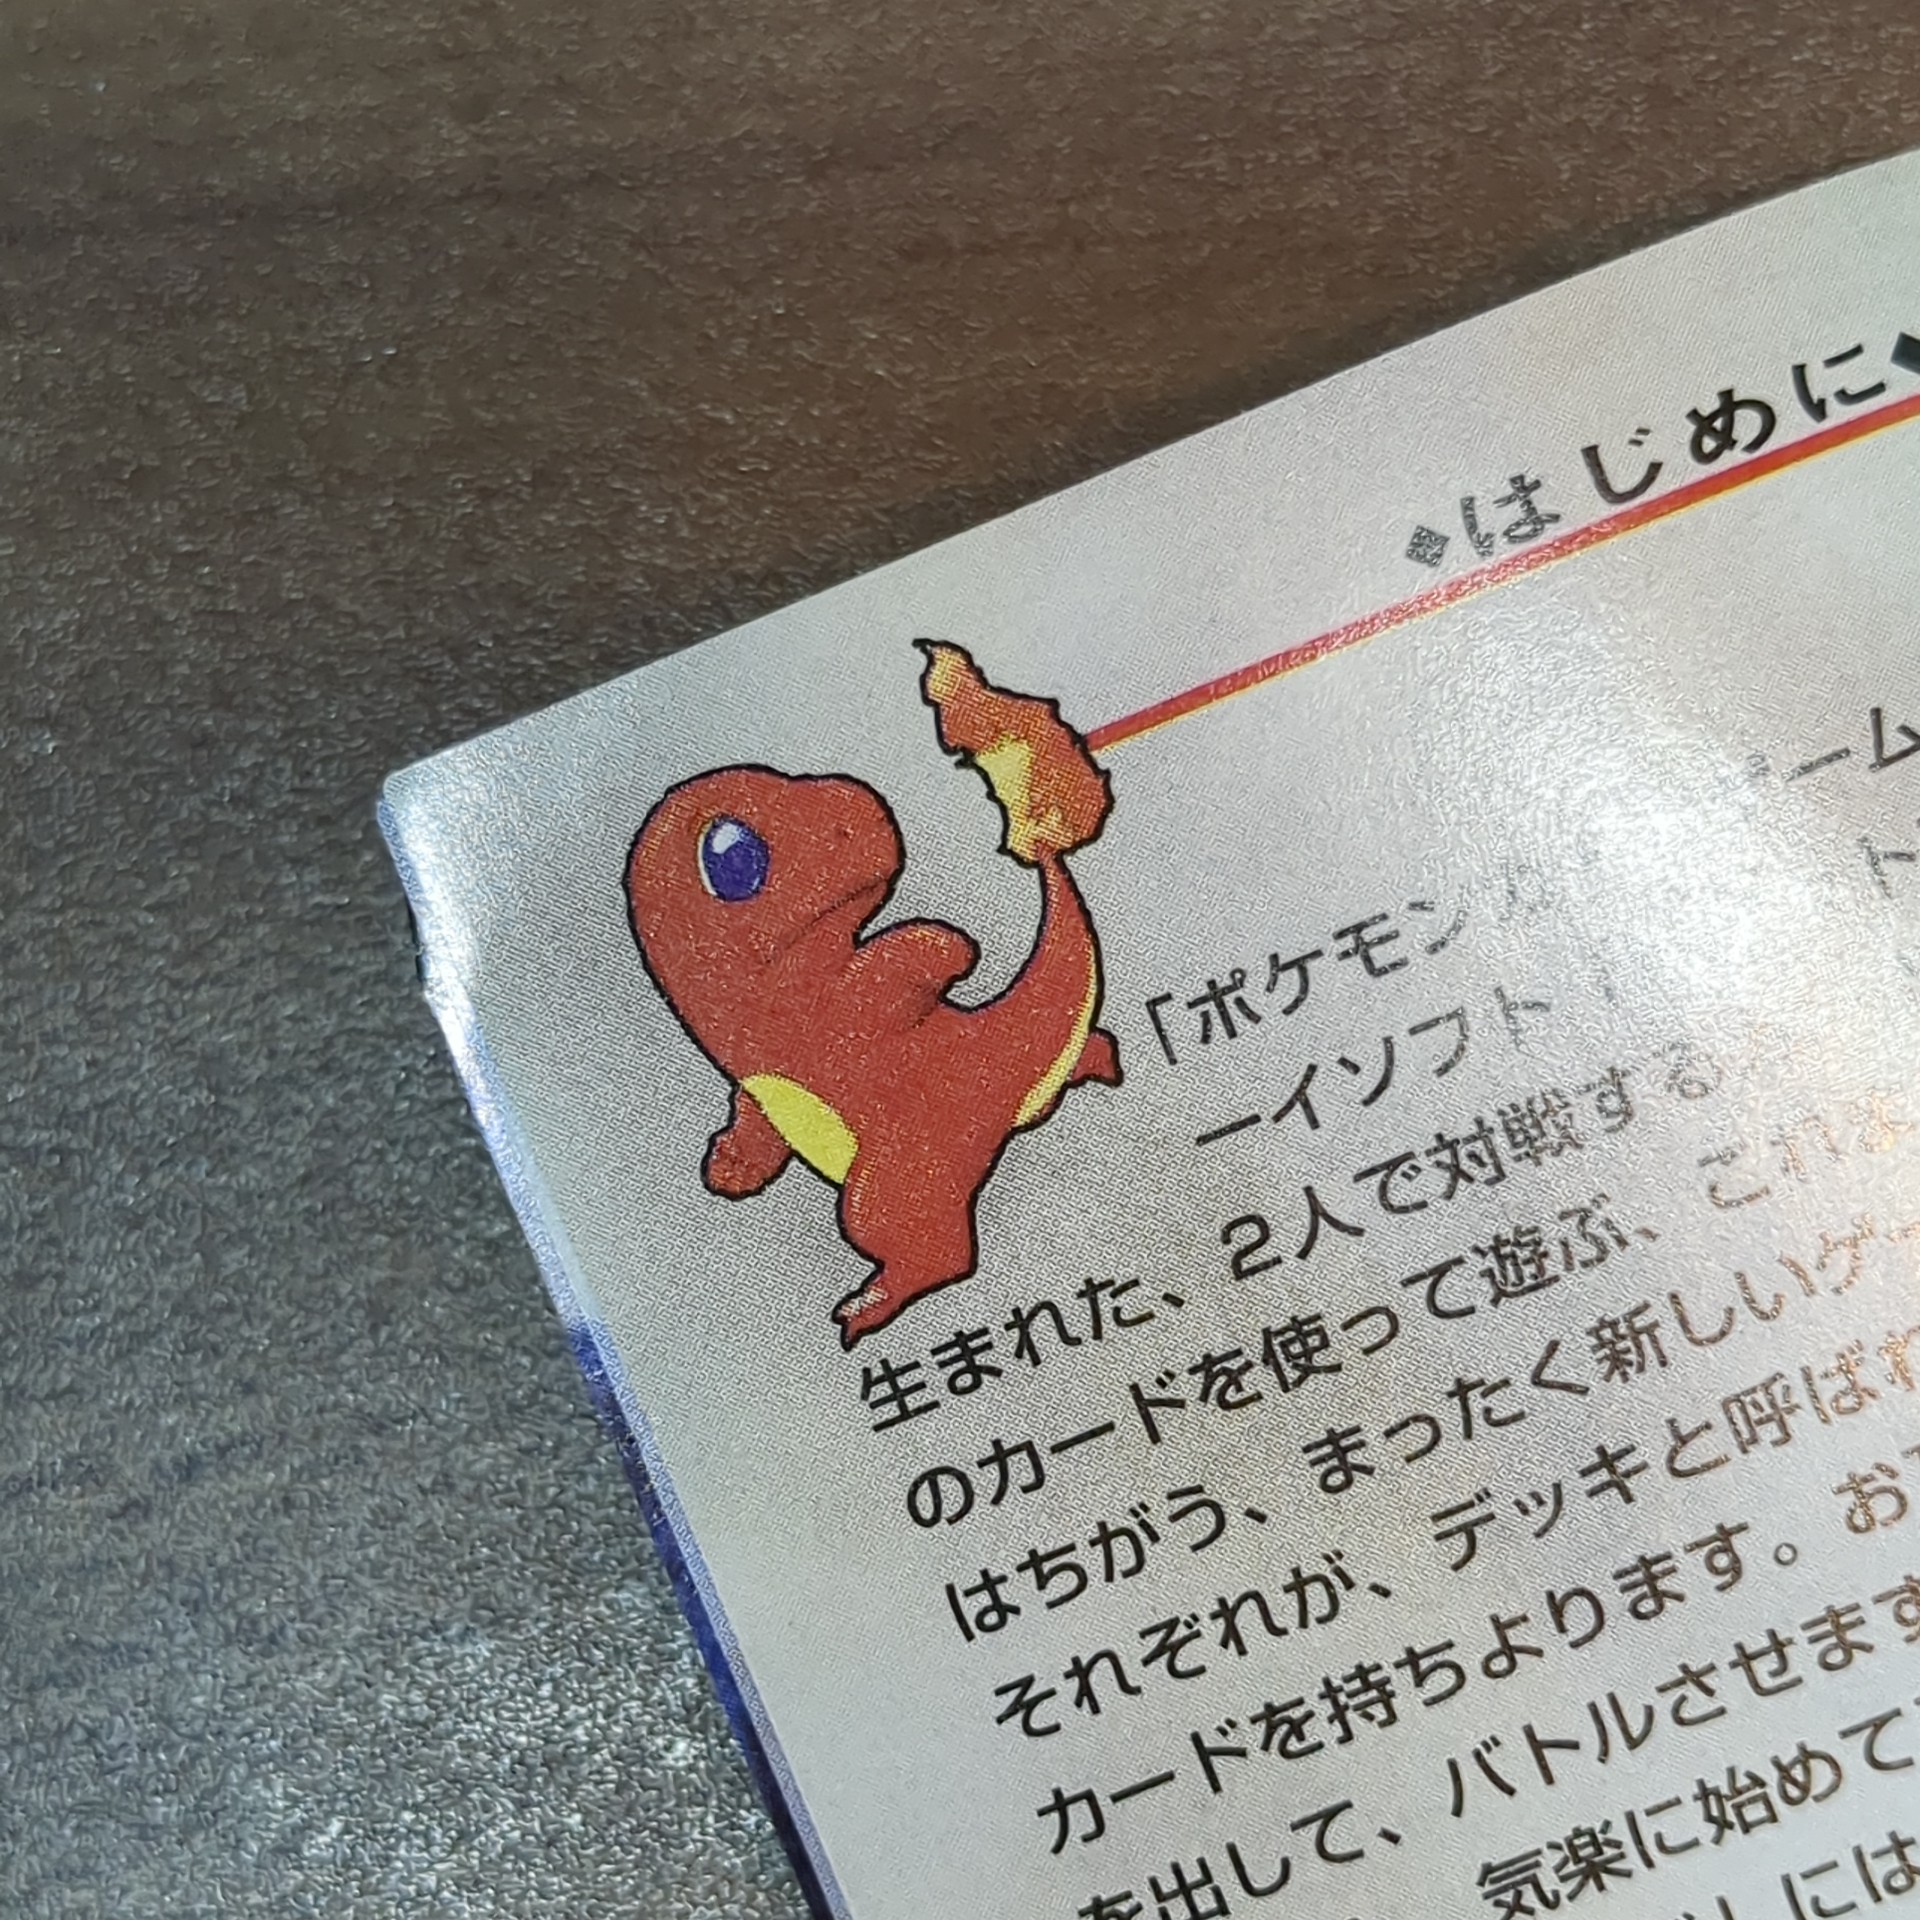 ◆はじめに◆
「ポケモンカードゲーム
ーイソフト
生まれた、2人で対戦する
のカードを使って遊ぶ、これま
はちがう、まったく新しいゲー
それぞれが、デッキと呼ばれ
カードを持ちよります。お
を出して、バトルさせます
気楽に始めて
には